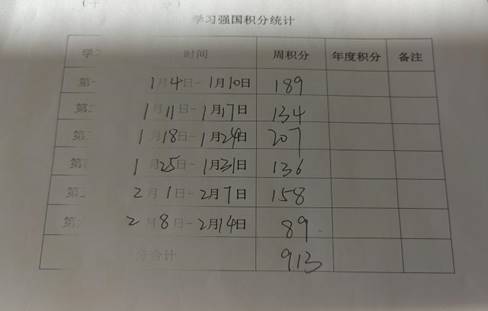 学习强国积分统计
学 时间 周积分 年度积分 备注
第一 1月4日-1月10日 189
第二 1月11日-1月17日 134
第 1月18日-1月24日 207
第 1月25日-1月31日 136
第 2月1日-2月7日 158
第 2月8日-2月14日 89
分合计 913